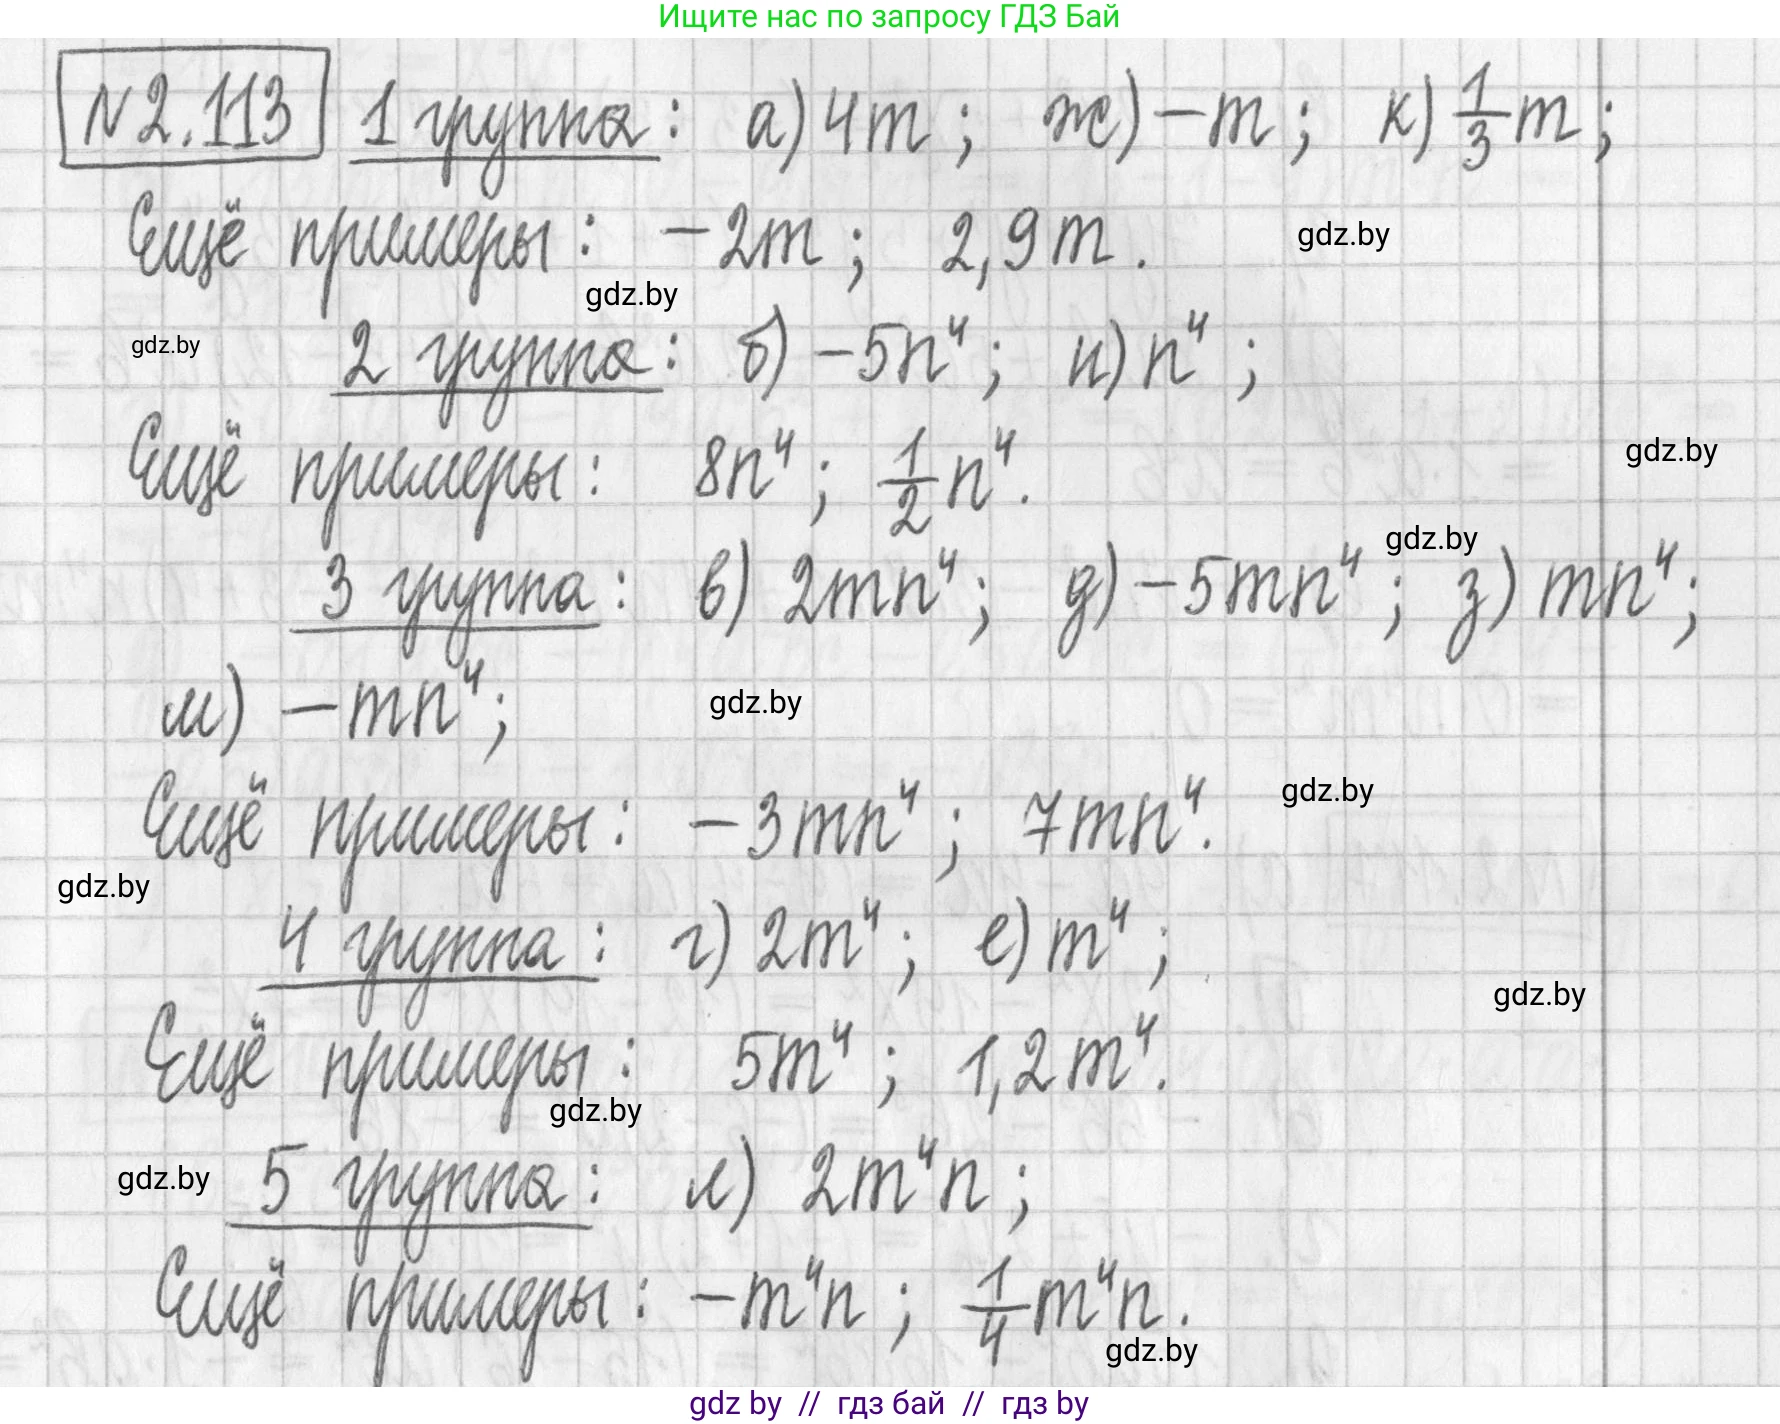 Ищите нас по запросу ГДЗ Бай
N2.113 1 группа: а) 4m; ж) -m; к) 1/3 m;
Ещё примеры: -2m; 2,9m.
gdz.by
gdz.by
gdz.by
2 группа: б) -5n⁴; и) n⁴;
Ещё примеры: 8n⁴; 1/2 n⁴.
gdz.by
gdz.by
3 группа: в) 2mn⁴; д) -5mn⁴; з) mn⁴;
м) -mn⁴;
gdz.by
Ещё примеры: -3mn⁴; 7mn⁴.
gdz.by
gdz.by
4 группа: г) 2m⁴; е) m⁴;
gdz.by
Ещё примеры: 5m⁴; 1,2m⁴.
gdz.by
gdz.by
5 группа: л) 2m⁴n;
Ещё примеры: -m⁴n; 1/4 m⁴n.
gdz.by
gdz by // гдз бай // гдз by